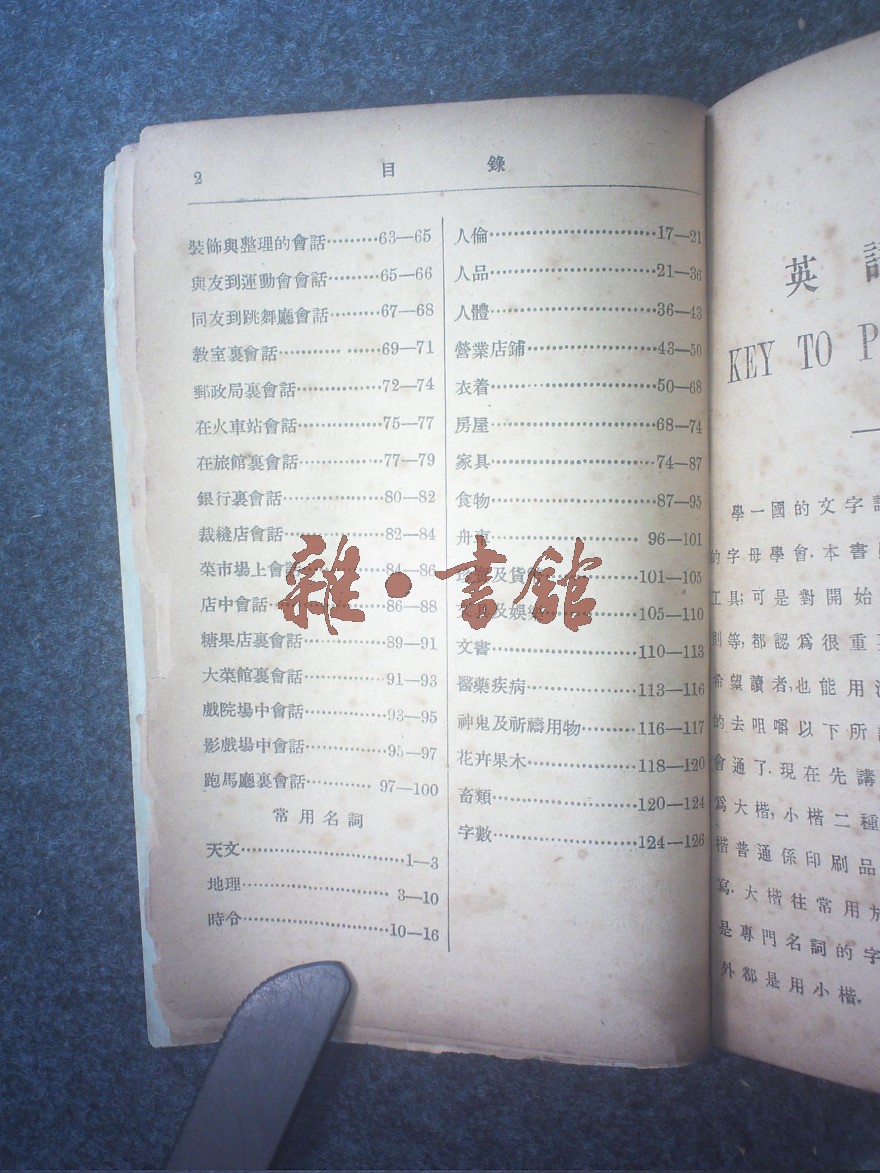 2
目錄
裝飾與整理的會話………63—65
與友到運動會會話………65—66
同友到跳舞廳會話………67—68
教室裏會話………………69—71
郵政局裏會話……………72—74
在火車站會話……………75—77
在旅館裏會話……………77—79
銀行裏會話………………80—82
裁縫店會話………………82—84
菜市場上會話……………84—86
店中會話…………………86—88
糖果店裏會話……………89—91
大菜館裏會話……………91—93
戲院場中會話……………93—95
影戲場中會話……………95—97
跑馬廳裏會話…………97—100
常用名詞
天文…………………………1—3
地理………………………3—10
時令………………………10—16
人倫………………………17—21
人品………………………21—36
人體………………………36—43
營業店鋪…………………43—50
衣着………………………50—68
房屋………………………68—74
家具………………………74—87
食物………………………87—95
舟車………………………96—101
及貨………………………101—105
及娛樂……………………105—110
文書………………………110—113
醫藥疾病…………………113—116
神鬼及祈禱用物…………116—117
花卉果木…………………118—120
畜類………………………120—124
字數………………………124—126
雜·書館
英
KEY TO P
學一國的文字
的字母學會.本書
工具;可是對開始
則等,都認爲很重
希望讀者,也能用
的去咀嚼以下所
會通了.現在先講
爲大楷,小楷二種
楷普通係印刷品
寫.大楷往常用於
是專門名詞的字
外都是用小楷.